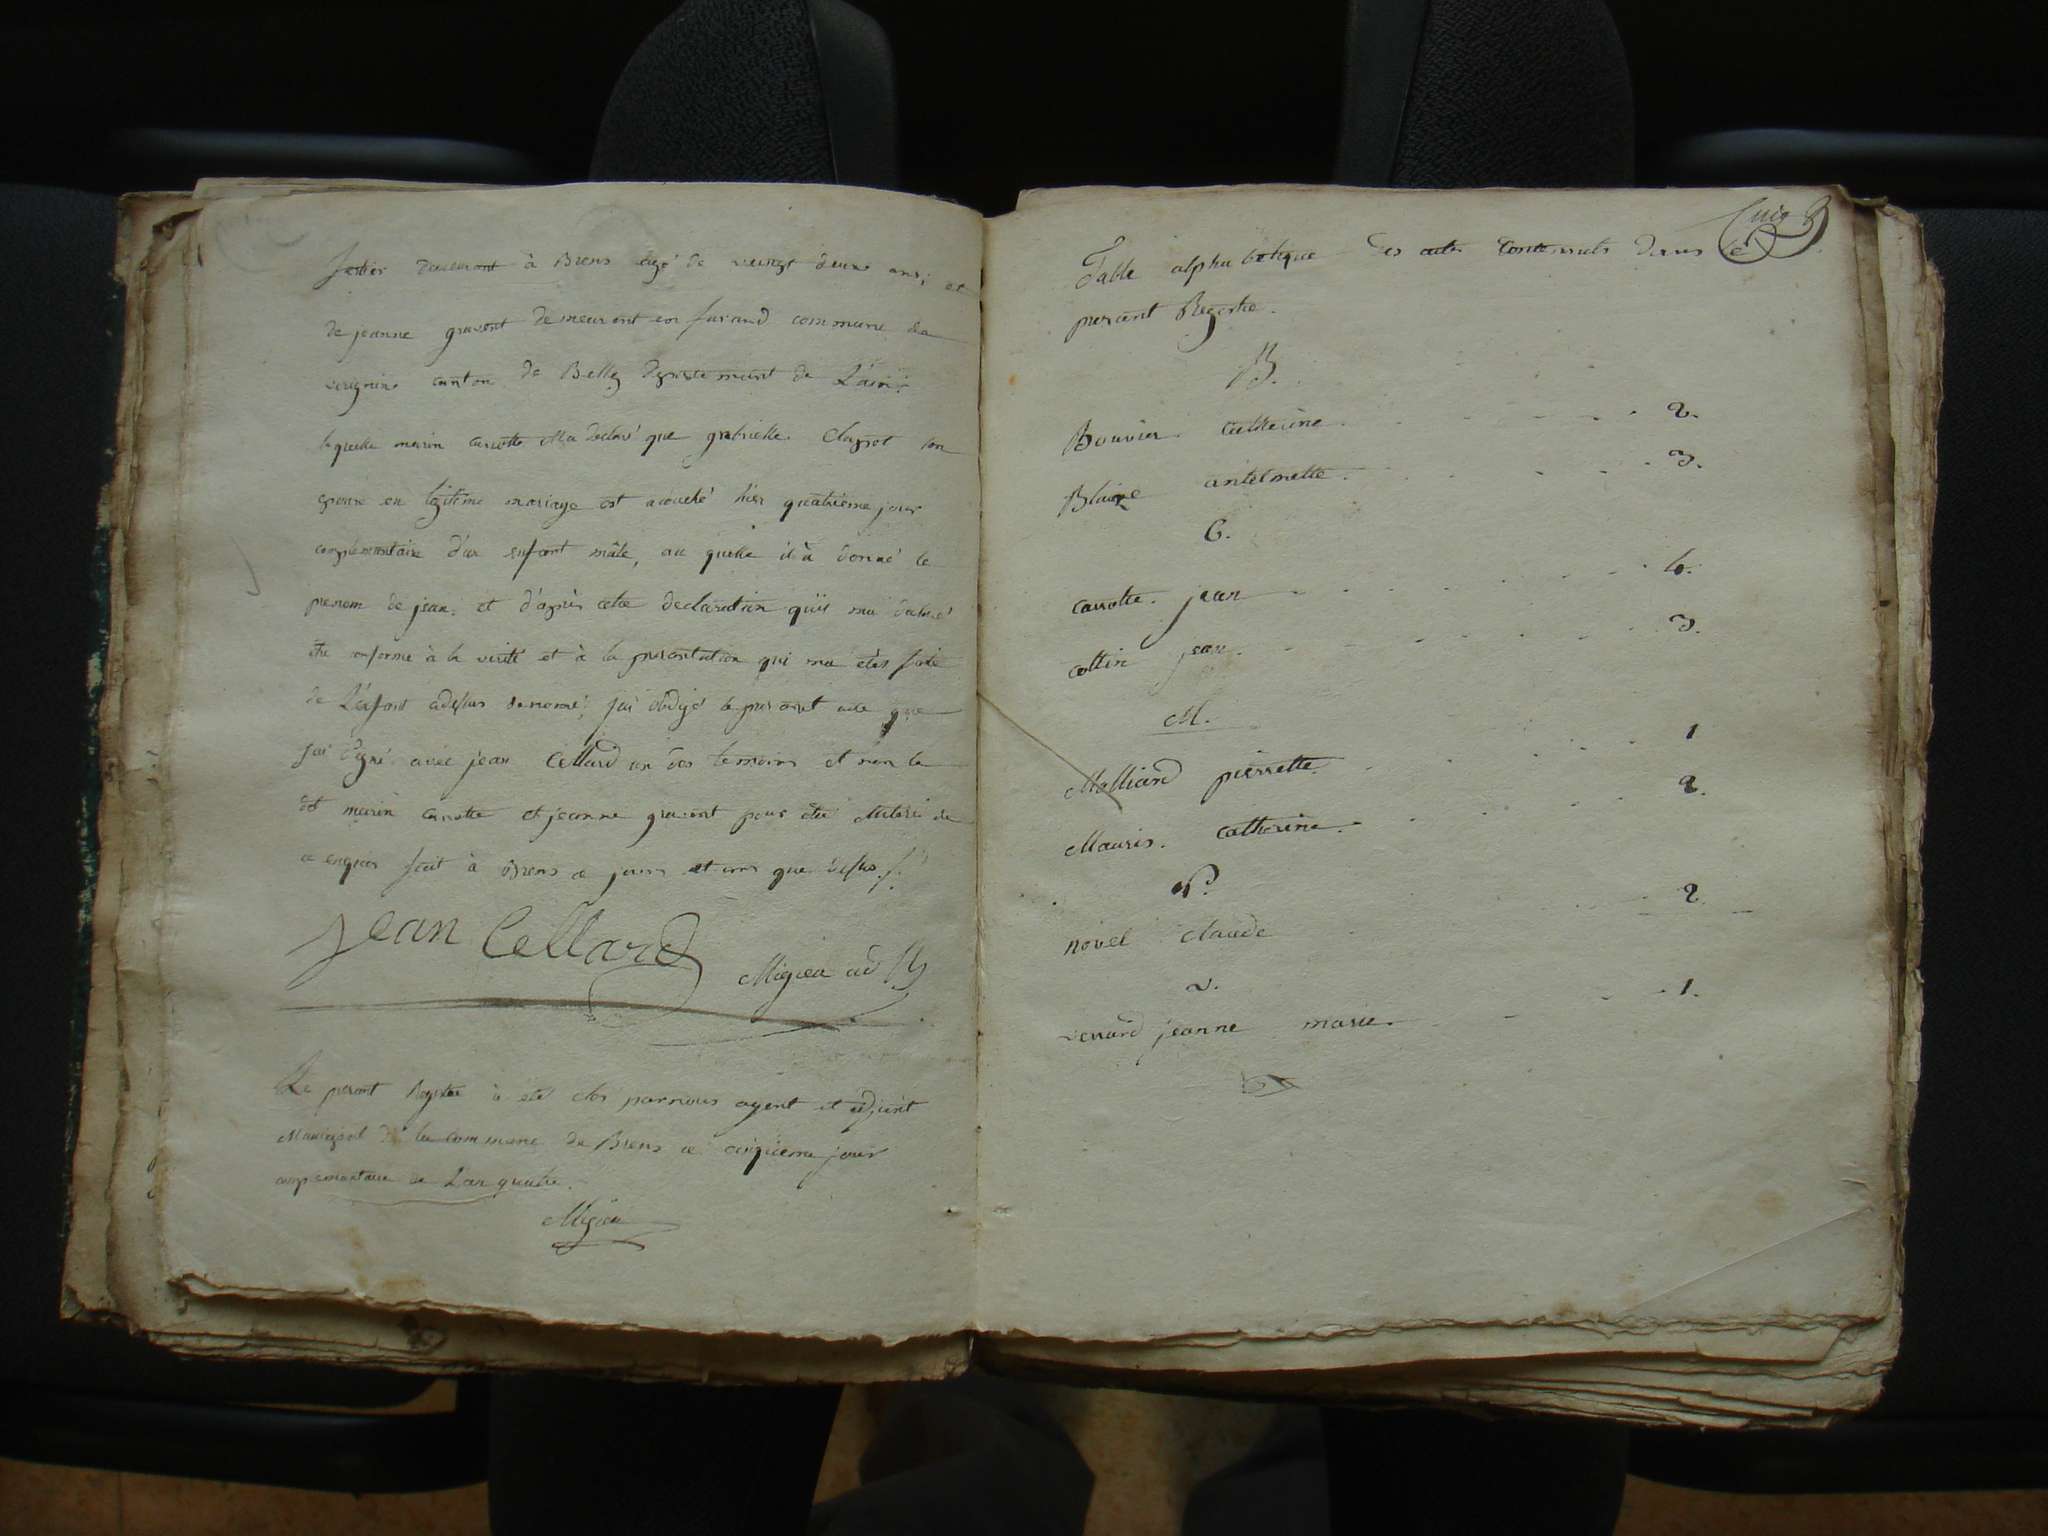 demeurant à Brens agé de veingt deux ans, et
de jeanne gravent demeurant en furand commune de
veirignin canton de Belley departement de L'ain.
lequelle marin carrotte Ma declaré que gabrielle Clapot son
epouse en légitime mariage est acouché hier quatrieme jour
complementaire d'un enfant mâle, au quelle il à donné le
prenom de jean. et d'après cette declaration quis ma
être conforme à la verité et à la presentation qui ma etés faite
de L'enfant adessus denomé, jai rédigé le present acte que
jai signé avec jean Cellard un des temoins et non le
dit marin carrotte et jeanne gravent pour être de
ce enquis fait à Brens ce jours et ans que dessus
jean Cellard
Migieu ad
Le present Registre à eté clos parnous agent et adjoint
Municipal de la commune de Brens ce cinqieme jour
complementaire de L'an quatre.
Migieu
Cinq
Table alphabetique des actes contenuts dans le
present Registre.
B.
Bouvier catherine 2.
Blaize antelmette 3.
C.
carrotte jean 6.
collin jean 3.
M.
Molliard pierrette 1
Mauris. catherine 2.
novel claude 2
v.
verard jeanne marie 1.